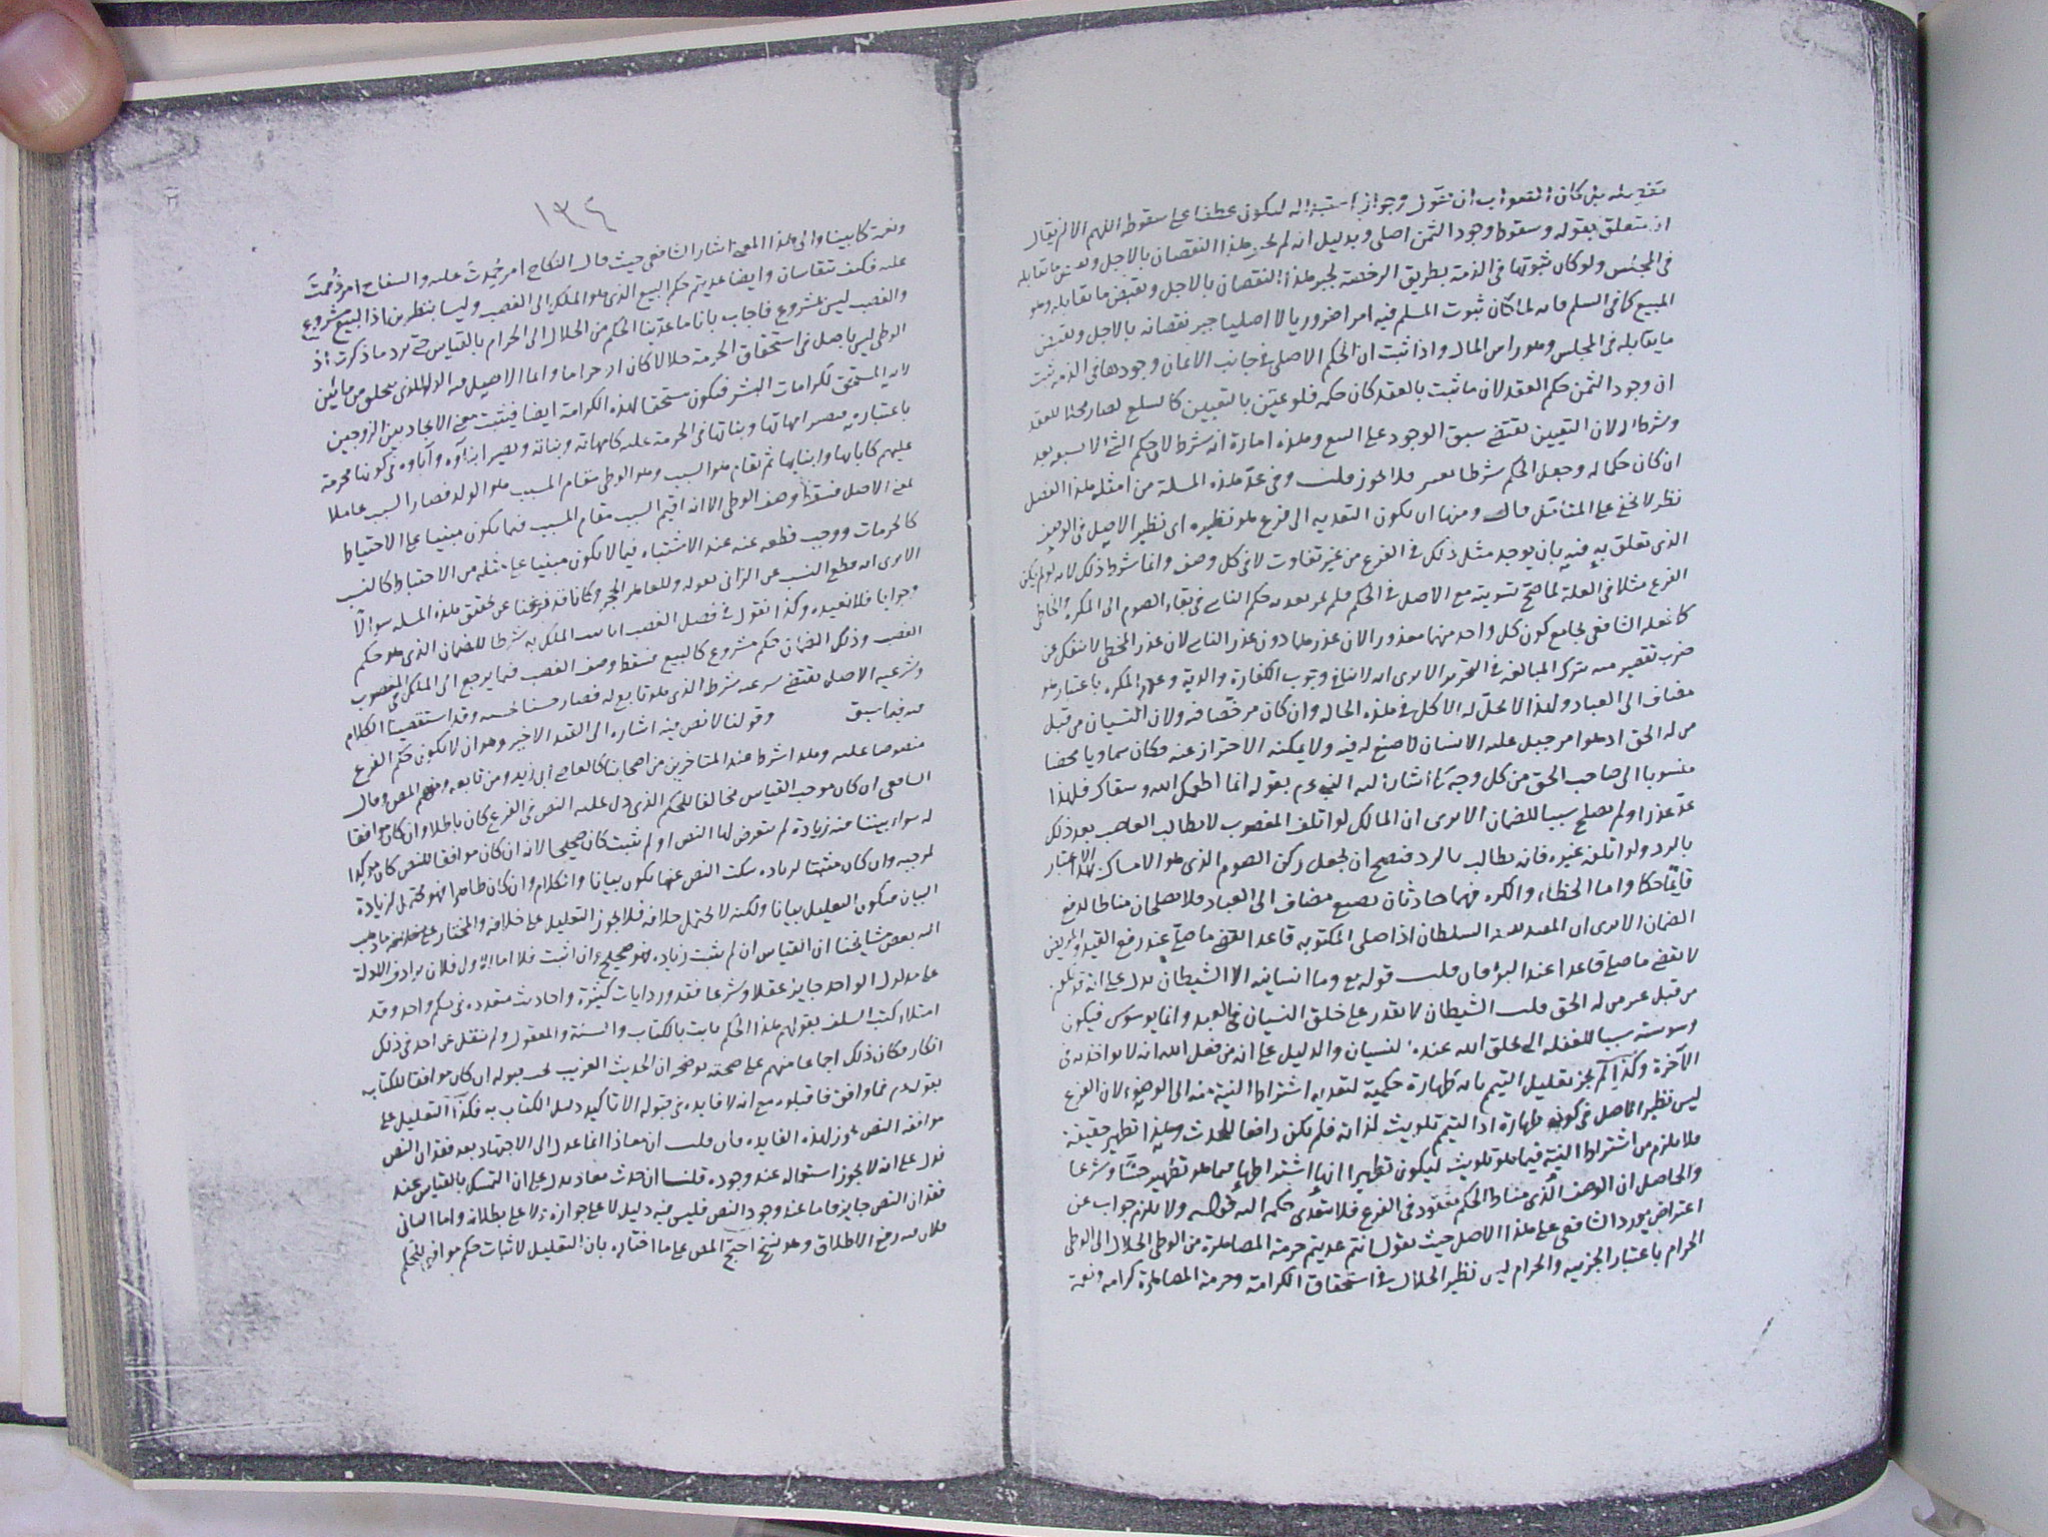 كان الصواب ان نقول وجواز استبداله ليكون عطفا على سقوطه اللهم الا ان يقال
بقوله وسقوط وجود الثمن اصلى وبدليل انه لم هذا النقصان بالاجل
فى المجلس ولو كان ثبوتها فى الذمة بطريق الرخصة لجبر هذا النقصان بالاجل وبقبض ما يقابله وهو
المبيع كما فى السلم فانه لما كان ثبوت المسلم فيه امرا ضروريا لا اصليا جبر نقصانه بالاجل وبقبض
ما يقابله فى المجلس وهو راس المال واذا ثبت ان الحكم الاصلى فى جانب الاثمان وجودها فى الذمة ثبت
ان وجود الثمن حكم العقد لان ما ثبت بالعقد كان حكمه فلو عين بالتعيين كالسلع لصار محلا للعقد
وشرطا له لان التعيين يقتضى سبق الوجود على البيع وهذه امارة انه شرط لان حكم الشئ لا يسبقه بعد
ان كان حكما له وجعل الحكم شرطا فلا يجوز قلت وفى عد هذه المسلة من امثلة هذا الفصل
نظر لا يخفى على المتامل قال ومنها ان يكون التعدية الى فرع هو نظيره اى نظير الاصل فى الوصف
الذى تعلق به فيه بان يوجد مثل ذلك فى الفرع من غير تفاوت لا فى كل وصف وانما شرط ذلك لانه لو لم يكن
الفرع مثلا فى العلة لما صح تسويته مع الاصل فى الحكم فلم تعدية حكم الناسى فى بقاء الصوم الى المكره والخاطى
كما فعله الشافعى بجامع كون كل واحد منهما معذورا لان عذرهما دون عذر الناسى لان عذر المخطى لا ينفك عن
ضرب تقصير منه بترك المبالغة فى التحرز الا يرى انه لا ينافى وجوب الكفارة والدية وعذر المكره باعتبار هو
مضاف الى العباد ولهذا لا يحل له الاكل فى هذه الحالة وان كان مرخصا فيه ولان النسيان من قبل
من له الحق اذ هو امر جبل عليه الانسان لا صنع له فيه ولا يمكنه الاحتراز عنه فكان سماويا محضا
منسوبا الى صاحب الحق من كل وجه كما اشار اليه النبى عم بقوله انما اطعمك الله وسقاك فلهذا
عد عذرا ولم يصلح سببا للضمان الا يرى ان المالك لو اتلف المغصوب لا يطالب الغاصب بعد ذلك
بالرد ولو اتلفه غيره فانه يطالب بالرد فيصح ان يجعل ركن الصوم الذى هو الامساك بهذا الاعتبار
قايما حكما واما الخطاء والكره فهما حادثان بصنع مضاف الى العباد فلا يصلحان مناطا لدفع
الضمان الا يرى ان المقيد السلطان اذا صلى المكتوبة قاعدا يقضى ما صلى عند رفع القيد والمريض
لا يقضى ما صلى قاعدا عند البرؤ فان قلت قوله تع وما انسانيه الا الشيطان يدل على انه قد يكون
من قبل غير من له الحق قلت الشيطان لا يقدر على خلق النسيان فى العبد وانما يوسوس فيكون
وسوسته سببا للغفلة التى يخلق الله عندها النسيان والدليل على انه من فعل الله انه لا يواخذ به فى
الآخرة وكذا لم يجز تعليل التيمم بانه طهارة حكمية لتعدية اشتراط النية منه الى الوضوء لان الفرع
ليس نظير الاصل فى كونه طهارة اذ التيمم تلويث لذاته فلم يكن رافعا للحدث وهذا تطهير حقيقة
فلا يلزم من اشتراط النية فيما هو تلويث ليكون تطهيرا اشتراطها فيما هو تطهير حسا وشرعا
والحاصل ان الوصف الذى مناط الحكم مفقود فى الفرع فلا يتعدى حكمه اليه قوله ولا يلزم جواب عن
اعتراض يورد الشافعى على هذا الاصل حيث يقول انتم عديتم حرمة المصاهرة من الوطى الحلال الى الوطى
الحرام باعتبار الجزئية والحرام ليس نظير الحلال فى استحقاق الكرامة وحرمة المصاهرة كرامة ونعمة
١٣٤
ونعمة كما بينا والى هذا المعنى اشار الشافعى حيث قال النكاح امر حمدت عليه والسفاح امر ذممت
عليه فكيف يتقاسان وايضا عديتم حكم البيع الذى هو الملك الى الغصب وليسا بنظيرين اذ البيع مشروع
والغصب ليس بمشروع فاجاب بانا ما عدينا الحكم من الحلال الى الحرام بالقياس حتى يرد ما ذكرت اذ
الوطى ليس باصل فى استحقاق الحرمة حلالا كان او حراما وانما الاصل فيه الولد الذى يخلق من مائين
لانه المستحق لكرامات البشر فيكون مستحقا لهذه الكرامة ايضا فيثبت معنى الاتحاد بين الزوجين
باعتباره فيصير امهاتها وبناتها فى الحرمة عليه كامهاته وبناته ويصير ابناؤه وآباؤه فى كونها محرمة
عليهم كآبائها وابنائها ثم يقام هو السبب وهو الوطى مقام المسبب هو الولد فصار السبب عاملا
بمعنى الاصل فسقط وصف الوطى الا انه اقيم السبب مقام المسبب فيما يكون مبنيا على الاحتياط
كالحرمات ووجب قطعه عنه عند الاشتباه فيما لا يكون مبنيا على مثله من الاحتياط كالنسب
الا يرى انه قطع النسب عن الزانى بقوله وللعاهر الحجر وكنا قد فرغنا عن تحقق هذه المسلة سوالا
وجوابا فلا نعيده وكذا نقول فى فصل الغصب انا الملك به شرطا للضمان الذى هو حكم
الغصب وذلك الضمان حكم مشروع كالبيع فسقط وصف الغصب فيما يرجع الى الملك فى المغصوب
وشرعية الاصل يقتضى شرعية شرطه الذى هو تابع له فصار حسنا لحسنه وقد استقصينا الكلام
فيه فيما سبق وقولنا لا نص فيه اشارة الى القيد الاخير وهو ان لا يكون حكم الفرع
منصوصا عليه وهذا شرط عند المتاخرين من اصحابنا كالقاضى ابى زيد ومن تابعه ومنهم المص وقال
الشافعى ان كان موجب القياس مخالفا للحكم الذى دل عليه النص فى الفرع كان باطلا وان كان موافقا
له سواء يثبتا فيه زيادة لم يتعرض لها النص او لم يثبت كان صحيحا لانه ان كان موافقا للنص كان موكدا
لموجبه وان كان مثبتا لزيادة سكت النص عنها يكون بيانا والكلام وان كان ظاهرا فهو يحتمل لزيادة
البيان فيكون التعليل بيانا ولكنه لا يحتمل خلافه فلا يجوز التعليل على خلافه والمختار ما ذهب
اليه بعض مشايخنا ان القياس ان لم يثبت زيادة فهو صحيح وان اثبت فلا اما الاول فلان ترادف الادلة
على مدلول الواحد جايز عقلا وشرعا فقد ورد ايات كثيرة واحاديث متعددة فى حكم واحد وقد
امتلاء كتب السلف بقولهم هذا الحكم ثابت بالكتاب والسنة والمعقول ولم ينقل عن احد فى ذلك
انكار فكان ذلك اجماعا منهم على صحته يوضحه ان الحديث الغريب يجب قبوله ان كان موافقا للكتاب
بقوله عم فما وافق فاقبلوه مع انه لا فايدة فى قبوله الا تاكيد دليل الكتاب به فكذا التعليل على
موافقة النص يجوز لهذه الفايدة فان قلت ان معاذا انما عدل الى الاجتهاد بعد فقدان النص
فدل على انه لا يجوز استعماله عند وجوده قلنا ان حديث معاذ يدل على ان التمسك بالقياس عند
فقدان النص جايز فاما عند وجود النص فليس فيه دليل لا على جوازه ولا على بطلانه واما الثانى
فلان فيه رفع الاطلاق وهو نسخ احتج المص على ما اختاره بان التعليل لاثبات حكم موافق للحكم